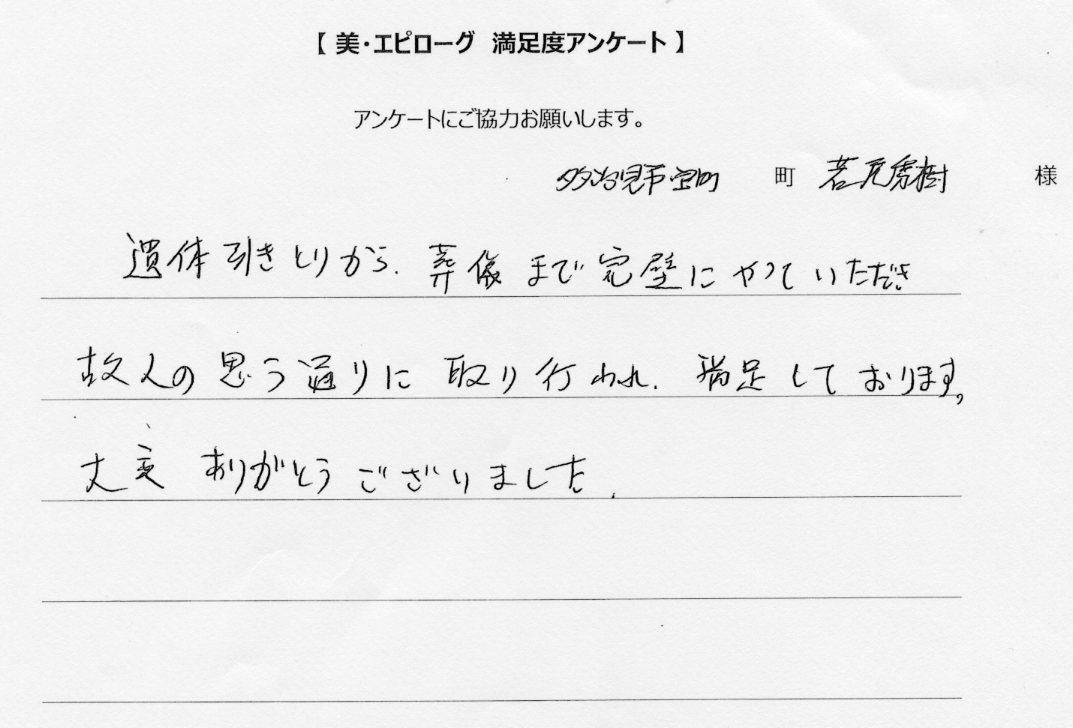 【 美・エピローグ 満足度アンケート 】
アンケートにご協力お願いします。
多治見市宝町 町 若尾秀樹 様
遺体引きとりから、葬儀まで完璧にやっていただき
故人の思う通りに取り行われ、満足しております。
大変ありがとうございました。